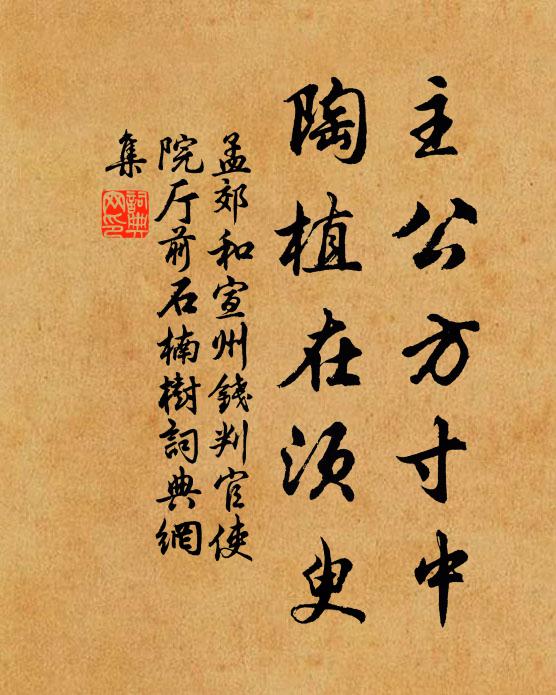 主公方寸中
陶植在須臾
孟郊和宣州錢判官使
院厅前石楠樹詞典網
集
詞典
网印